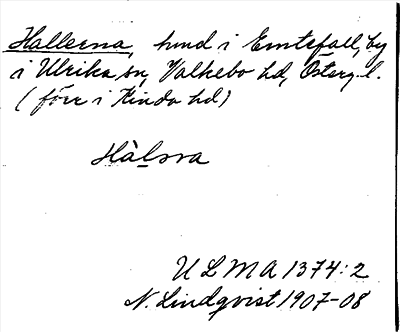 Hallerna, hmd i Emtefall, by
i Ulrika sn, Valkebo hd, Österg. l.
(förr i Kinda hd)
Hàlsra
ULMA 1374:2
N. Lindqvist 1907-08